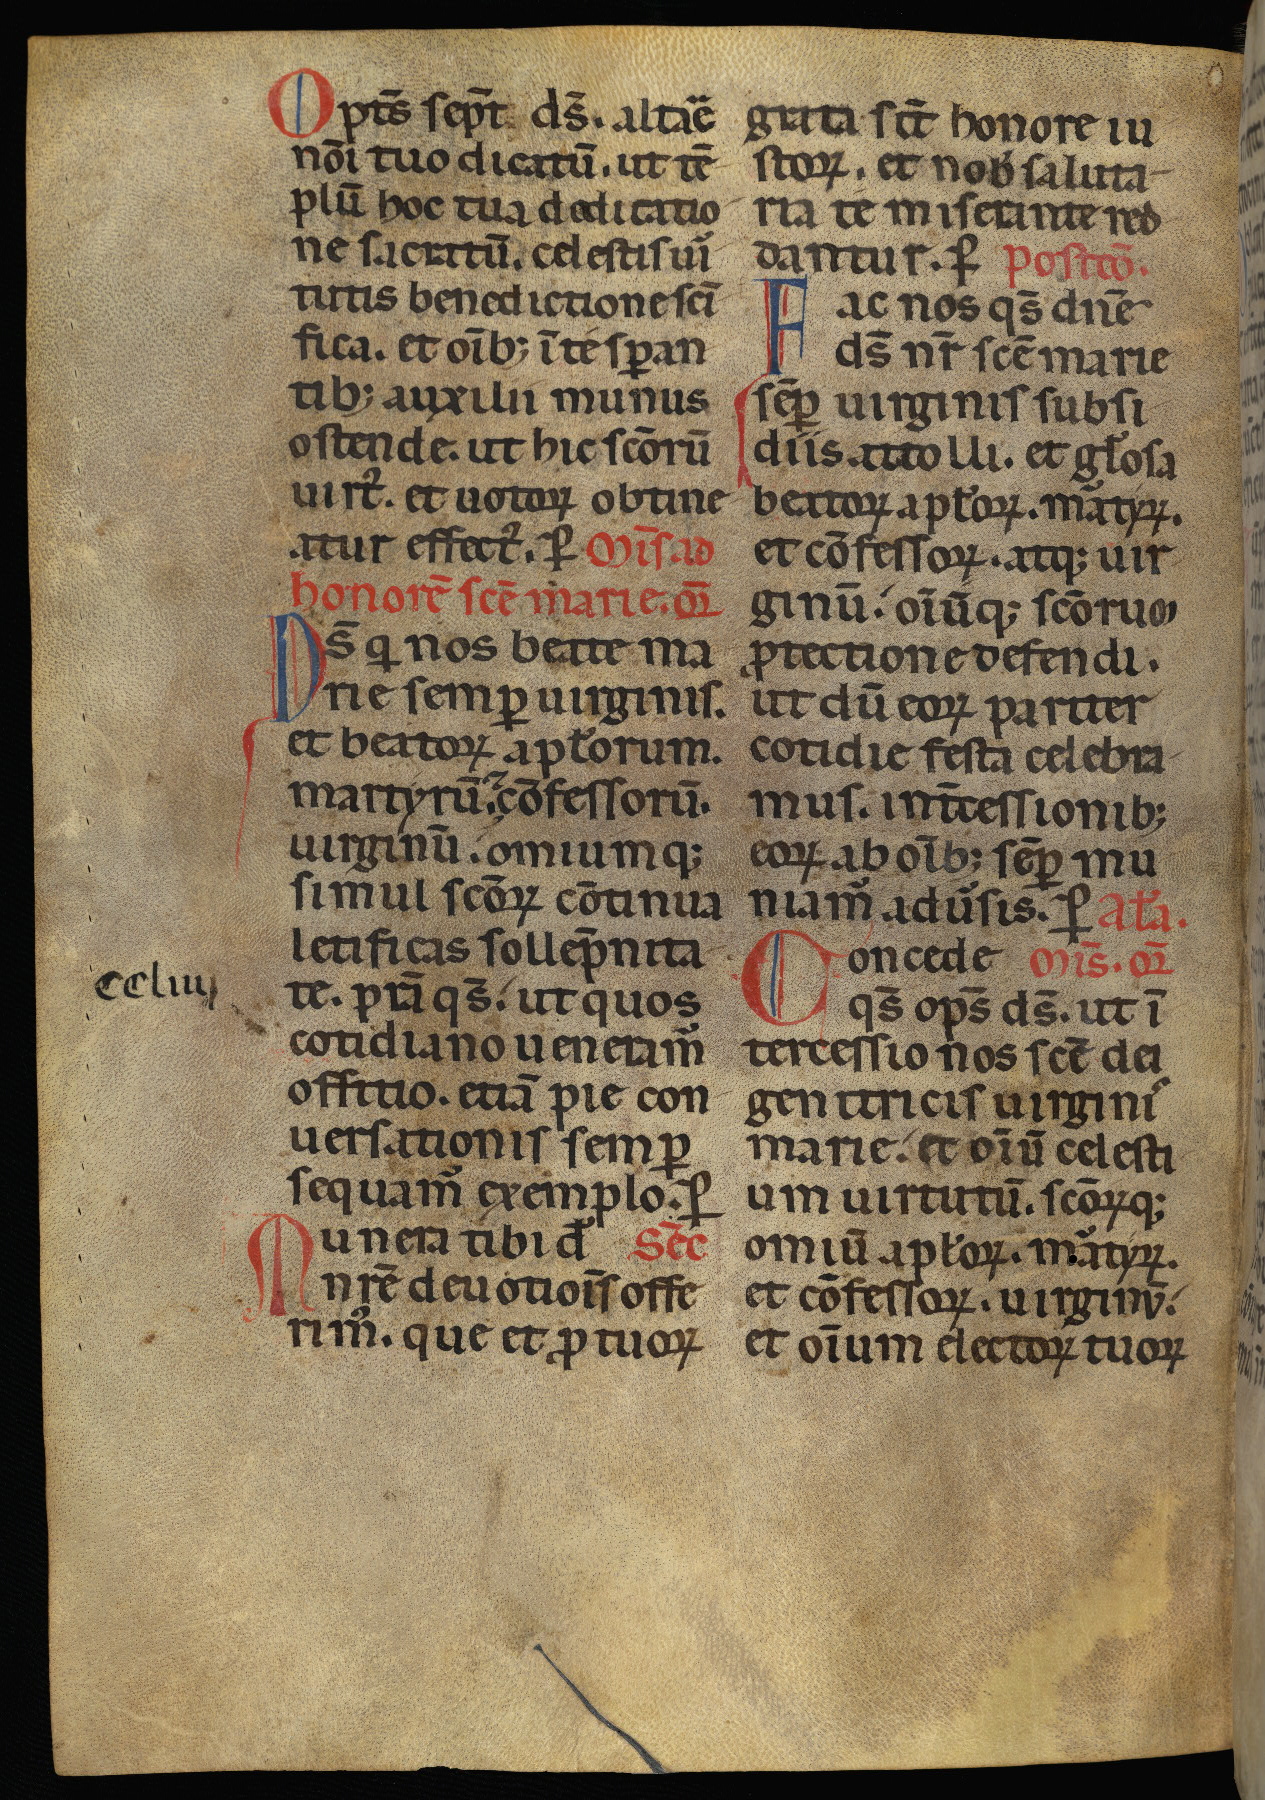 Opt̄s sep̄t ds̄. altar̄e
nōi tuo dicatū. ut tē
plū hoc tua dedicatio
ne sacratū. celestis uir
tutis benedictione sc̄i
fica. et oīb; ī te sꝑan
tib; auxilii munus
ostende. ut hic scōrū
uirt᷒. et uotoꝝ obtine
atur effect᷒. ꝑ Mis̄. ad
honorē scē marie. or̄
Ds̄ q nos beate ma
rie semꝑ uirginis.
et beatoꝝ apl̄orum.
martyrū. ⁊ cōfessorū.
uirginū. omiumq;
simul scōꝝ cōtinua
letificas sollēpnita
te. pr̄i qs̄. ut quos
cotidiano ueneram᷒
offitio. etiā pie con
uersationis semꝑ
sequam᷒ exemplo. ꝑ
Munera tibi d̄ Sēc
nr̄e deuotiōis offe
rim᷒. que et ꝓ tuoꝝ
ccliiij
grata sīt honore iu
stoꝝ. et nob̄ saluta
ria te miserante red
dantur. ꝑ postcō.
Fac nos qs̄ dn̄e
ds̄ nr̄ scē marie
sēꝑ uirginis subsi
diis attolli. et gl̄osa
beatoꝝ apl̄oꝝ. martyꝝ.
et cōfessoꝝ. atq; uir
ginū. oīūq; scōrum
ꝓtectione defendi.
ut dū eoꝝ pariter
cotidie festa celebra
mus. int̄cessionib;
eoꝝ ab oīb; sēꝑ mu
niam᷒ aduersis. ꝑ Al̄a.
Concede mis̄. or̄
qs̄ ops̄ ds̄. ut ī
tercessio nos scē dei
genitricis uirginis
marie. et oīū celesti
um uirtutū. scōꝝq;
omiū apl̄oꝝ. martyꝝ.
et cōfessoꝝ. uirginū.
et oīum electoꝝ tuoꝝ